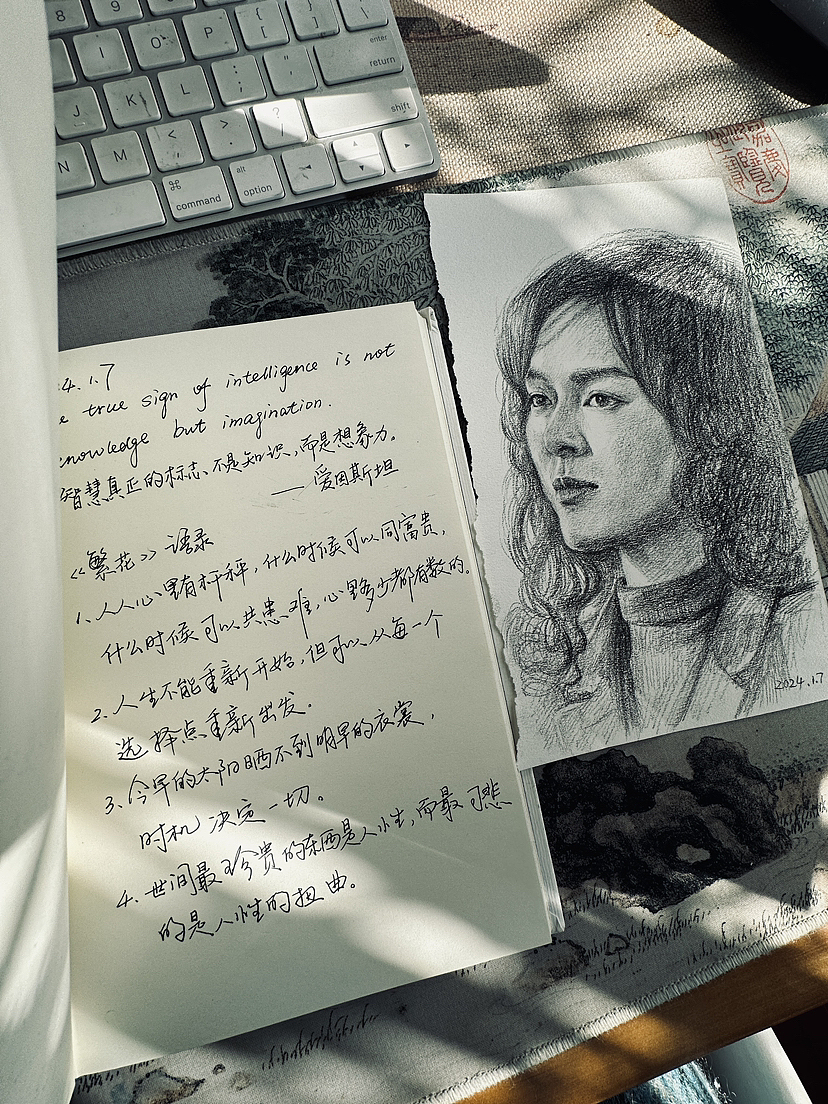 8 9
{ [ } ] | \
I O P
enter return
J K L : ; " '
shift
N M < , > . ? /
⌘ command
alt option
4.1.7
true sign of intelligence is not
knowledge but imagination.
智慧真正的标志、不是知识、而是想象力。
—— 爱因斯坦
《繁花》语录
1、人人心里有杆秤，什么时候可以同富贵，
什么时候可以共患难，心里多少都有数的。
2、人生不能重新开始，但可以从每一个
选择点重新出发。
3、今早的太阳晒不到明早的衣裳，
时机决定一切。
4、世间最珍贵的东西是人性，而最可悲
的是人性的扭曲。
2024.1.7